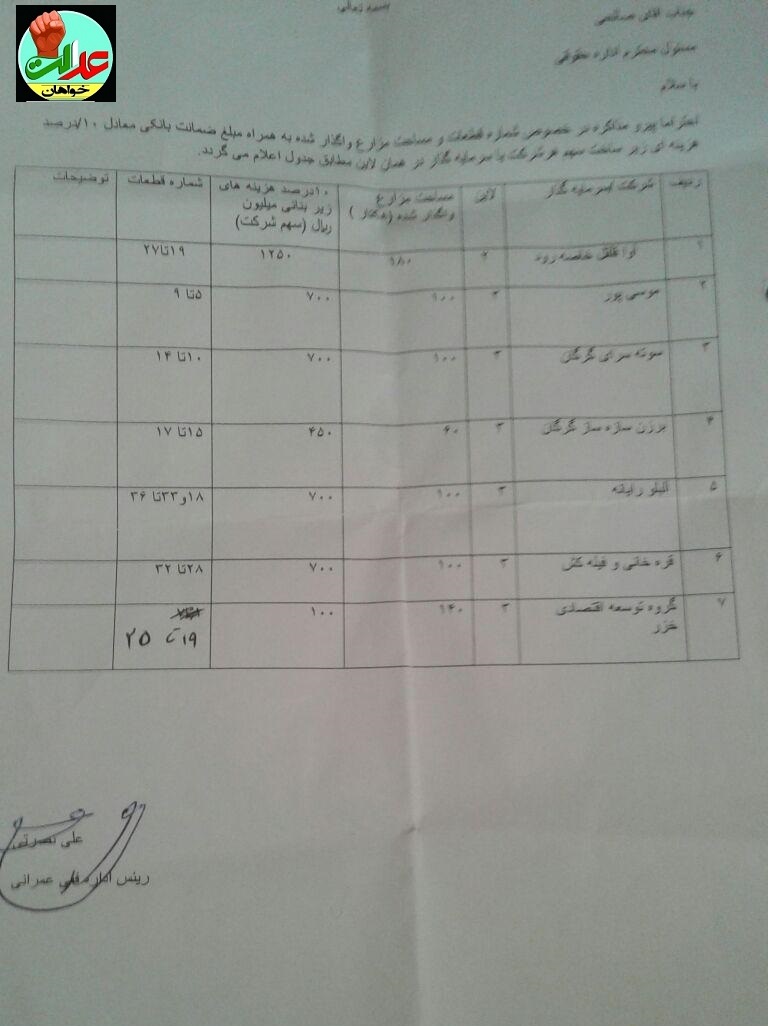 عدالت
خواهان
بسمه تعالی
جناب آقای صالحی
مسئول محترم اداره حقوقی
با سلام
احتراما پیرو مذاکره در خصوص شماره قطعات و مساحت مزارع واگذار شده به همراه مبلغ ضمانت بانکی معادل ۱۰/درصد
هزینه ای زیر ساخت سهم هر شرکت یا سرمایه گذار در همان لاین مطابق جدول اعلام می گردد.
ردیف شرکت /سرمایه گذار لاین مساحت مزارع ۱۰درصد هزینه های شماره قطعات توضیحات
واگذار شده (هکتار ) زیر بنائی میلیون
ریال (سهم شرکت)
۱ خاصه رود ۲ ۱۸۰ ۱۲۵۰ ۱۹تا۲۷
۲ موسی پور ۳ ۱۰۰ ۷۰۰ ۵تا ۹
۳ سوته سرای گرگان ۳ ۱۰۰ ۷۰۰ ۱۰تا ۱۴
۴ برزن سازه ساز گرگان ۳ ۶۰ ۴۵۰ ۱۵تا ۱۷
۵ رایانه ۳ ۱۰۰ ۷۰۰ ۱۸و۳۳تا ۳۶
۶ قره خانی و فینه کش ۳ ۱۰۰ ۷۰۰ ۲۸تا ۳۲
۷ گروه توسعه اقتصادی ۳ ۱۴۰ ۱۰۰
خزر ۱۹تا ۲۵
علی نصرتی
رئیس اداره فنی عمرانی